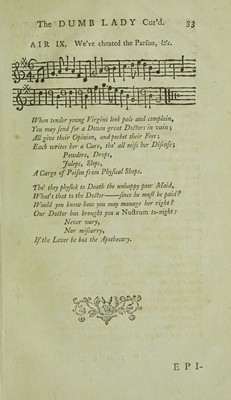 The DUMB LADY Cur'd. 33
AIR IX. We've cheated the Parson, &c.
When tender young Virgins look pale and complain,
You may send for a Dozen great Doctors in vain;
All give their Opinion, and pocket their Fees;
Each writes her a Cure, tho' all miss her Disease;
Powders, Drops,
Juleps, Slops,
A Cargo of Poison from Physical Shops.
Tho' they physick to Death the unhappy poor Maid,
What's that to the Doctor——since he must be paid?
Would you know how you may manage her right?
Our Doctor has brought you a Nostrum to-night:
Never vary,
Nor miscarry,
If the Lover be but the Apothecary.
EPI-